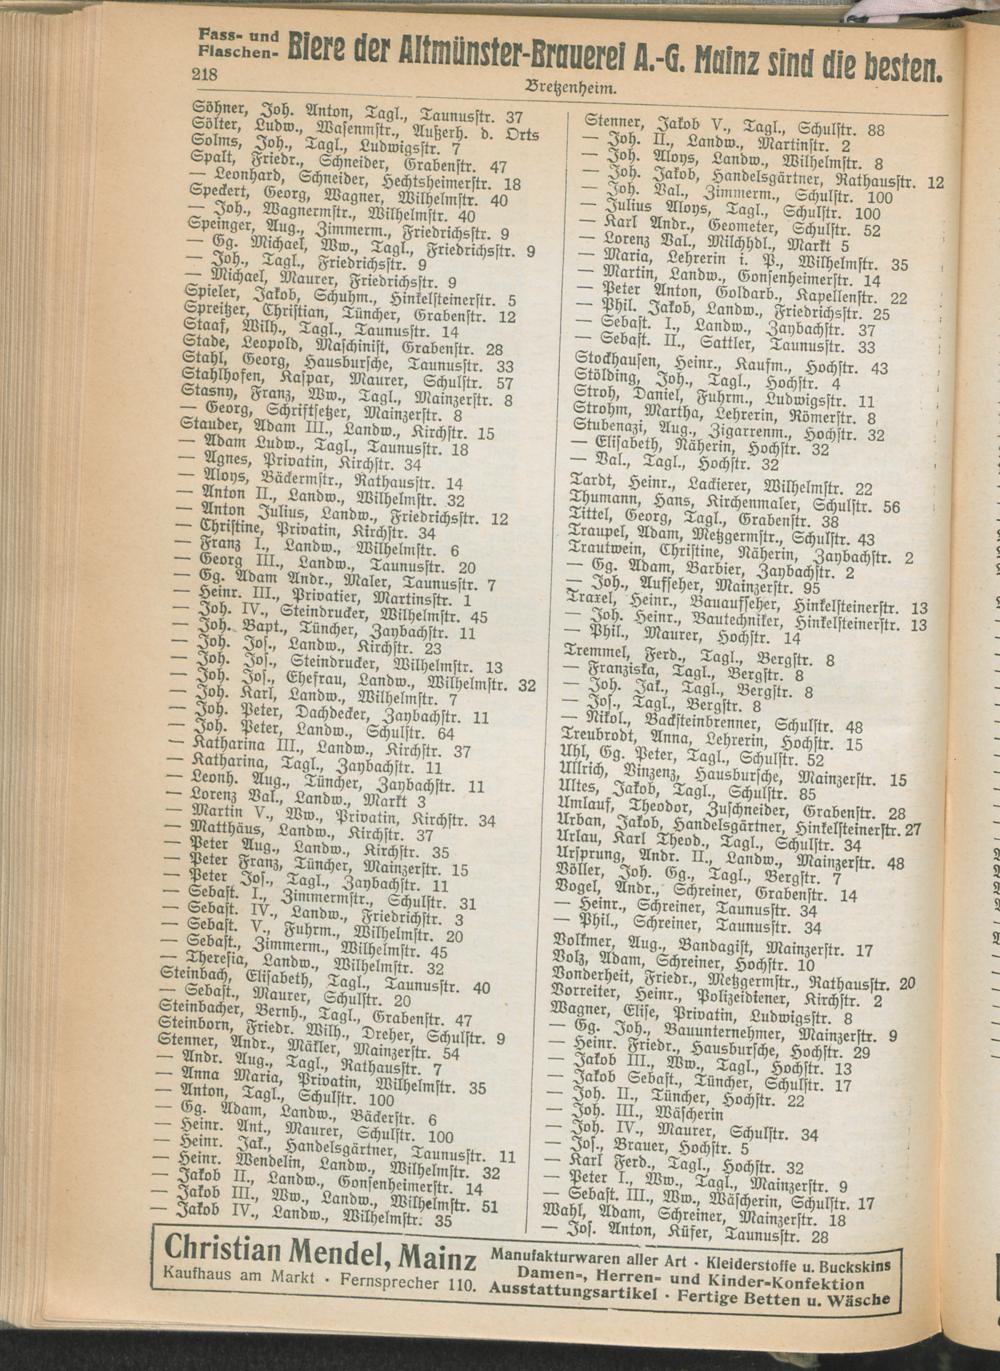 Fass- und
Flaschen- Biere der Altmünster-Brauerei A.-G. Mainz sind die besten.
218
Bretzenheim.
Söhner, Joh. Anton, Tagl., Taunusstr. 37
Sölter, Ludw., Wasenmstr., Außerh. d. Orts
Solms, Joh., Tagl., Ludwigsstr. 7
Spalt, Friedr., Schneider, Grabenstr. 47
— Leonhard, Schneider, Hechtsheimerstr. 18
Speckert, Georg, Wagner, Wilhelmstr. 40
— Joh., Wagnermstr., Wilhelmstr. 40
Speinger, Aug., Zimmerm., Friedrichsstr. 9
— Gg. Michael, Ww., Tagl., Friedrichsstr. 9
— Joh., Tagl., Friedrichsstr. 9
— Michael, Maurer, Friedrichsstr. 9
Spieler, Jakob, Schuhm., Hinkelsteinerstr. 5
Spreitzer, Christian, Tüncher, Grabenstr. 12
Staaf, Wilh., Tagl., Taunusstr. 14
Stade, Leopold, Maschinist, Grabenstr. 28
Stahl, Georg, Hausbursche, Taunusstr. 33
Stahlhofen, Kaspar, Maurer, Schulstr. 57
Stasny, Franz, Ww., Tagl., Mainzerstr. 8
— Georg, Schriftsetzer, Mainzerstr. 8
Stauder, Adam III., Landw., Kirchstr. 15
— Adam Ludw., Tagl., Taunusstr. 18
— Agnes, Privatin, Kirchstr. 34
— Aloys, Bäckermstr., Rathausstr. 14
— Anton II., Landw., Wilhelmstr. 32
— Anton Julius, Landw., Friedrichsstr. 12
— Christine, Privatin, Kirchstr. 34
— Franz I., Landw., Wilhelmstr. 6
— Georg III., Landw., Taunusstr. 20
— Gg. Adam Andr., Maler, Taunusstr. 7
— Heinr. III., Privatier, Martinsstr. 1
— Joh. IV., Steindrucker, Wilhelmstr. 45
— Joh. Bapt., Tüncher, Zaybachstr. 11
— Joh. Jos., Landw., Kirchstr. 23
— Joh. Jos., Steindrucker, Wilhelmstr. 13
— Joh. Jos., Ehefrau, Landw., Wilhelmstr. 32
— Joh. Karl, Landw., Wilhelmstr. 7
— Joh. Peter, Dachdecker, Zaybachstr. 11
— Joh. Peter, Landw., Schulstr. 64
— Katharina III., Landw., Kirchstr. 37
— Katharina, Tagl., Zaybachstr. 11
— Leonh. Aug., Tüncher, Zaybachstr. 11
— Lorenz Val., Landw., Markt 3
— Martin V., Ww., Privatin, Kirchstr. 34
— Matthäus, Landw., Kirchstr. 37
— Peter Aug., Landw., Kirchstr. 35
— Peter Franz, Tüncher, Mainzerstr. 15
— Peter Jos., Tagl., Zaybachstr. 11
— Sebast. I., Zimmermstr., Schulstr. 31
— Sebast. IV., Landw., Friedrichstr. 3
— Sebast. V., Fuhrm., Wilhelmstr. 20
— Sebast., Zimmerm., Wilhelmstr. 45
— Theresia, Landw., Wilhelmstr. 32
Steinbach, Elisabeth, Tagl., Taunusstr. 40
— Sebast., Maurer, Schulstr. 20
Steinbacher, Bernh., Tagl., Grabenstr. 47
Steinborn, Friedr. Wilh., Dreher, Schulstr. 9
Stenner, Andr., Mäkler, Mainzerstr. 54
— Andr. Aug., Tagl., Rathausstr. 7
— Anna Maria, Privatin, Wilhelmstr. 35
— Anton, Tagl., Schulstr. 100
— Gg. Adam, Landw., Bäckerstr. 6
— Heinr. Ant., Maurer, Schulstr. 100
— Heinr. Jak., Handelsgärtner, Taunusstr. 11
— Heinr. Wendelin, Landw., Wilhelmstr. 32
— Jakob II., Landw., Gonsenheimerstr. 14
— Jakob III., Ww., Landw., Wilhelmstr. 51
— Jakob IV., Landw., Wilhelmstr. 35
Stenner, Jakob V., Tagl., Schulstr. 88
— Joh. II., Landw., Martinstr. 2
— Joh. Aloys, Landw., Wilhelmstr. 8
— Joh. Jakob, Handelsgärtner, Rathausstr. 12
— Joh. Val., Zimmerm., Schulstr. 100
— Julius Aloys, Tagl., Schulstr. 100
— Karl Andr., Geometer, Schulstr. 52
— Lorenz Val., Milchhdl., Markt 5
— Maria, Lehrerin i. P., Wilhelmstr. 35
— Martin, Landw., Gonsenheimerstr. 14
— Peter Anton, Goldarb., Kapellenstr. 22
— Phil. Jakob, Landw., Friedrichsstr. 25
— Sebast. I., Landw., Zaybachstr. 37
— Sebast. II., Sattler, Taunusstr. 33
Stockhausen, Heinr., Kaufm., Hochstr. 43
Stölding, Joh., Tagl., Hochstr. 4
Stroh, Daniel, Fuhrm., Ludwigsstr. 11
Strohm, Martha, Lehrerin, Römerstr. 8
Stubenazi, Aug., Zigarrenm., Hochstr. 32
— Elisabeth, Näherin, Hochstr. 32
— Val., Tagl., Hochstr. 32
Tardt, Heinr., Lackierer, Wilhelmstr. 22
Thumann, Hans, Kirchenmaler, Schulstr. 56
Tittel, Georg, Tagl., Grabenstr. 38
Traupel, Adam, Metzgermstr., Schulstr. 43
Trautwein, Christine, Näherin, Zaybachstr. 2
— Gg. Adam, Barbier, Zaybachstr. 2
— Joh., Aufseher, Mainzerstr. 95
Traxel, Heinr., Bauaufseher, Hinkelsteinerstr. 13
— Joh. Heinr., Bautechniker, Hinkelsteinerstr. 13
— Phil., Maurer, Hochstr. 14
Tremmel, Ferd., Tagl., Bergstr. 8
— Franziska, Tagl., Bergstr. 8
— Joh. Jak., Tagl., Bergstr. 8
— Jos., Tagl., Bergstr. 8
— Nikol., Backsteinbrenner, Schulstr. 48
Treubrodt, Anna, Lehrerin, Hochstr. 15
Uhl, Gg. Peter, Tagl., Schulstr. 52
Ullrich, Vinzenz, Hausbursche, Mainzerstr. 15
Ultes, Jakob, Tagl., Schulstr. 85
Umlauf, Theodor, Zuschneider, Grabenstr. 28
Urban, Jakob, Handelsgärtner, Hinkelsteinerstr. 27
Urlau, Karl Theod., Tagl., Schulstr. 34
Ursprung, Andr. II., Landw., Mainzerstr. 48
Völler, Joh. Gg., Tagl., Bergstr. 7
Vogel, Andr., Schreiner, Grabenstr. 14
— Heinr., Schreiner, Taunusstr. 34
— Phil., Schreiner, Taunusstr. 34
Volkmer, Aug., Bandagist, Mainzerstr. 17
Volz, Adam, Schreiner, Hochstr. 10
Vonderheit, Friedr., Metzgermstr., Rathausstr. 20
Vorreiter, Heinr., Polizeidiener, Kirchstr. 2
Wagner, Elise, Privatin, Ludwigsstr. 8
— Gg. Joh., Bauunternehmer, Mainzerstr. 9
— Heinr. Friedr., Hausbursche, Hochstr. 29
— Jakob III., Ww., Tagl., Hochstr. 13
— Jakob Sebast., Tüncher, Schulstr. 17
— Joh. II., Tüncher, Hochstr. 22
— Joh. III., Wäscherin
— Joh. IV., Maurer, Schulstr. 34
— Jos., Brauer, Hochstr. 5
— Karl Ferd., Tagl., Hochstr. 32
— Peter I., Ww., Tagl., Mainzerstr. 9
— Sebast. III., Ww., Wäscherin, Schulstr. 17
Wahl, Adam, Schreiner, Mainzerstr. 18
— Jos. Anton, Küfer, Taunusstr. 28
Christian Mendel, Mainz
Kaufhaus am Markt · Fernsprecher 110.
Manufakturwaren aller Art · Kleiderstoffe u. Buckskins
Damen-, Herren- und Kinder-Konfektion
Ausstattungsartikel · Fertige Betten u. Wäsche